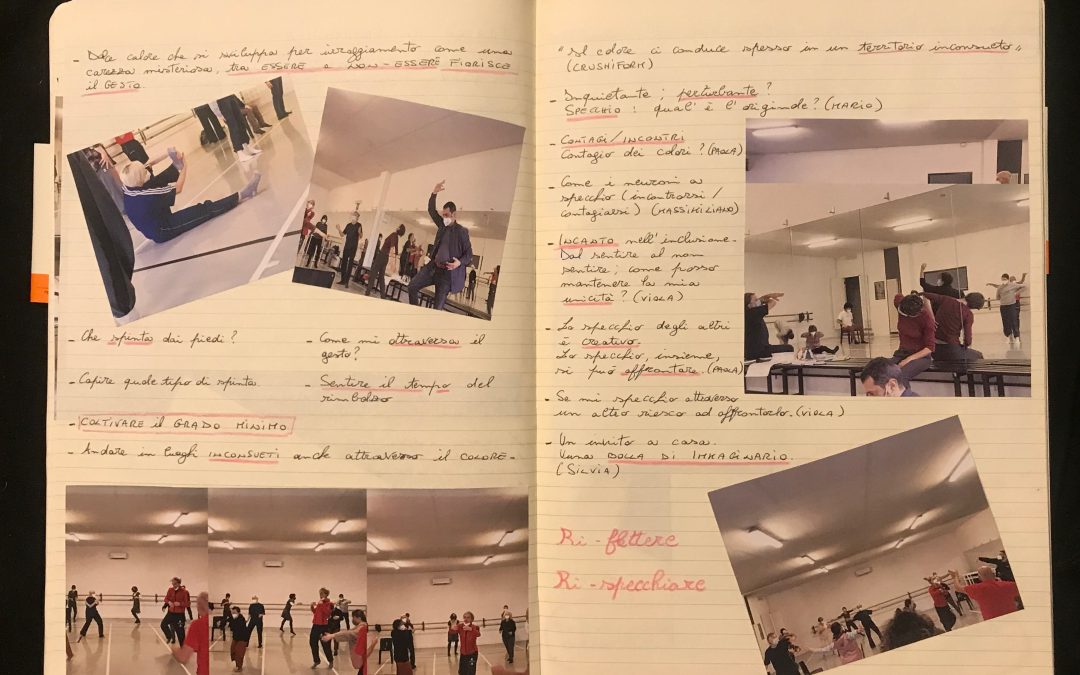 - Dole calore che si sviluppa per irraggiamento come una
carezza misteriosa, tra ESSERE e NON-ESSERE FIORISCE
il GESTO.
- Che spinta dai piedi?
- Come mi attraversa il
gesto?
- Capire quale tipo di spinta.
- Sentire il tempo del
rimbalzo
- COLTIVARE il GRADO MINIMO.
- Andare in luoghi INCONSUETI anche attraverso il COLORE-
"Il colore ci conduce spesso in un territorio inconsueto"
(CRUSHIFORM)
- Inquietante; perturbante?
SPECCHIO: qual'è l'originale? (MARIO)
- CONTAGI/INCONTRI
Contagio dei colori? (PAOLA)
- Come i neuroni a
specchio (incontrarsi/
contagiarsi) (MASSIMILIANO)
- INCANTO nell'inclusione-
Dal sentire al non
sentire; come posso
mantenere la mia
unicità? (VIOLA)
- Lo specchio degli altri
è creativo.
Lo specchio, insieme,
si può affrontare. (PAOLA)
- Se mi specchio attraverso
un altro riesco ad affrontarlo. (VIOLA)
- Un invito a casa.
Una BOLLA DI IMMAGINARIO.
(SILVIA)
Ri-flettere
Ri-specchiare